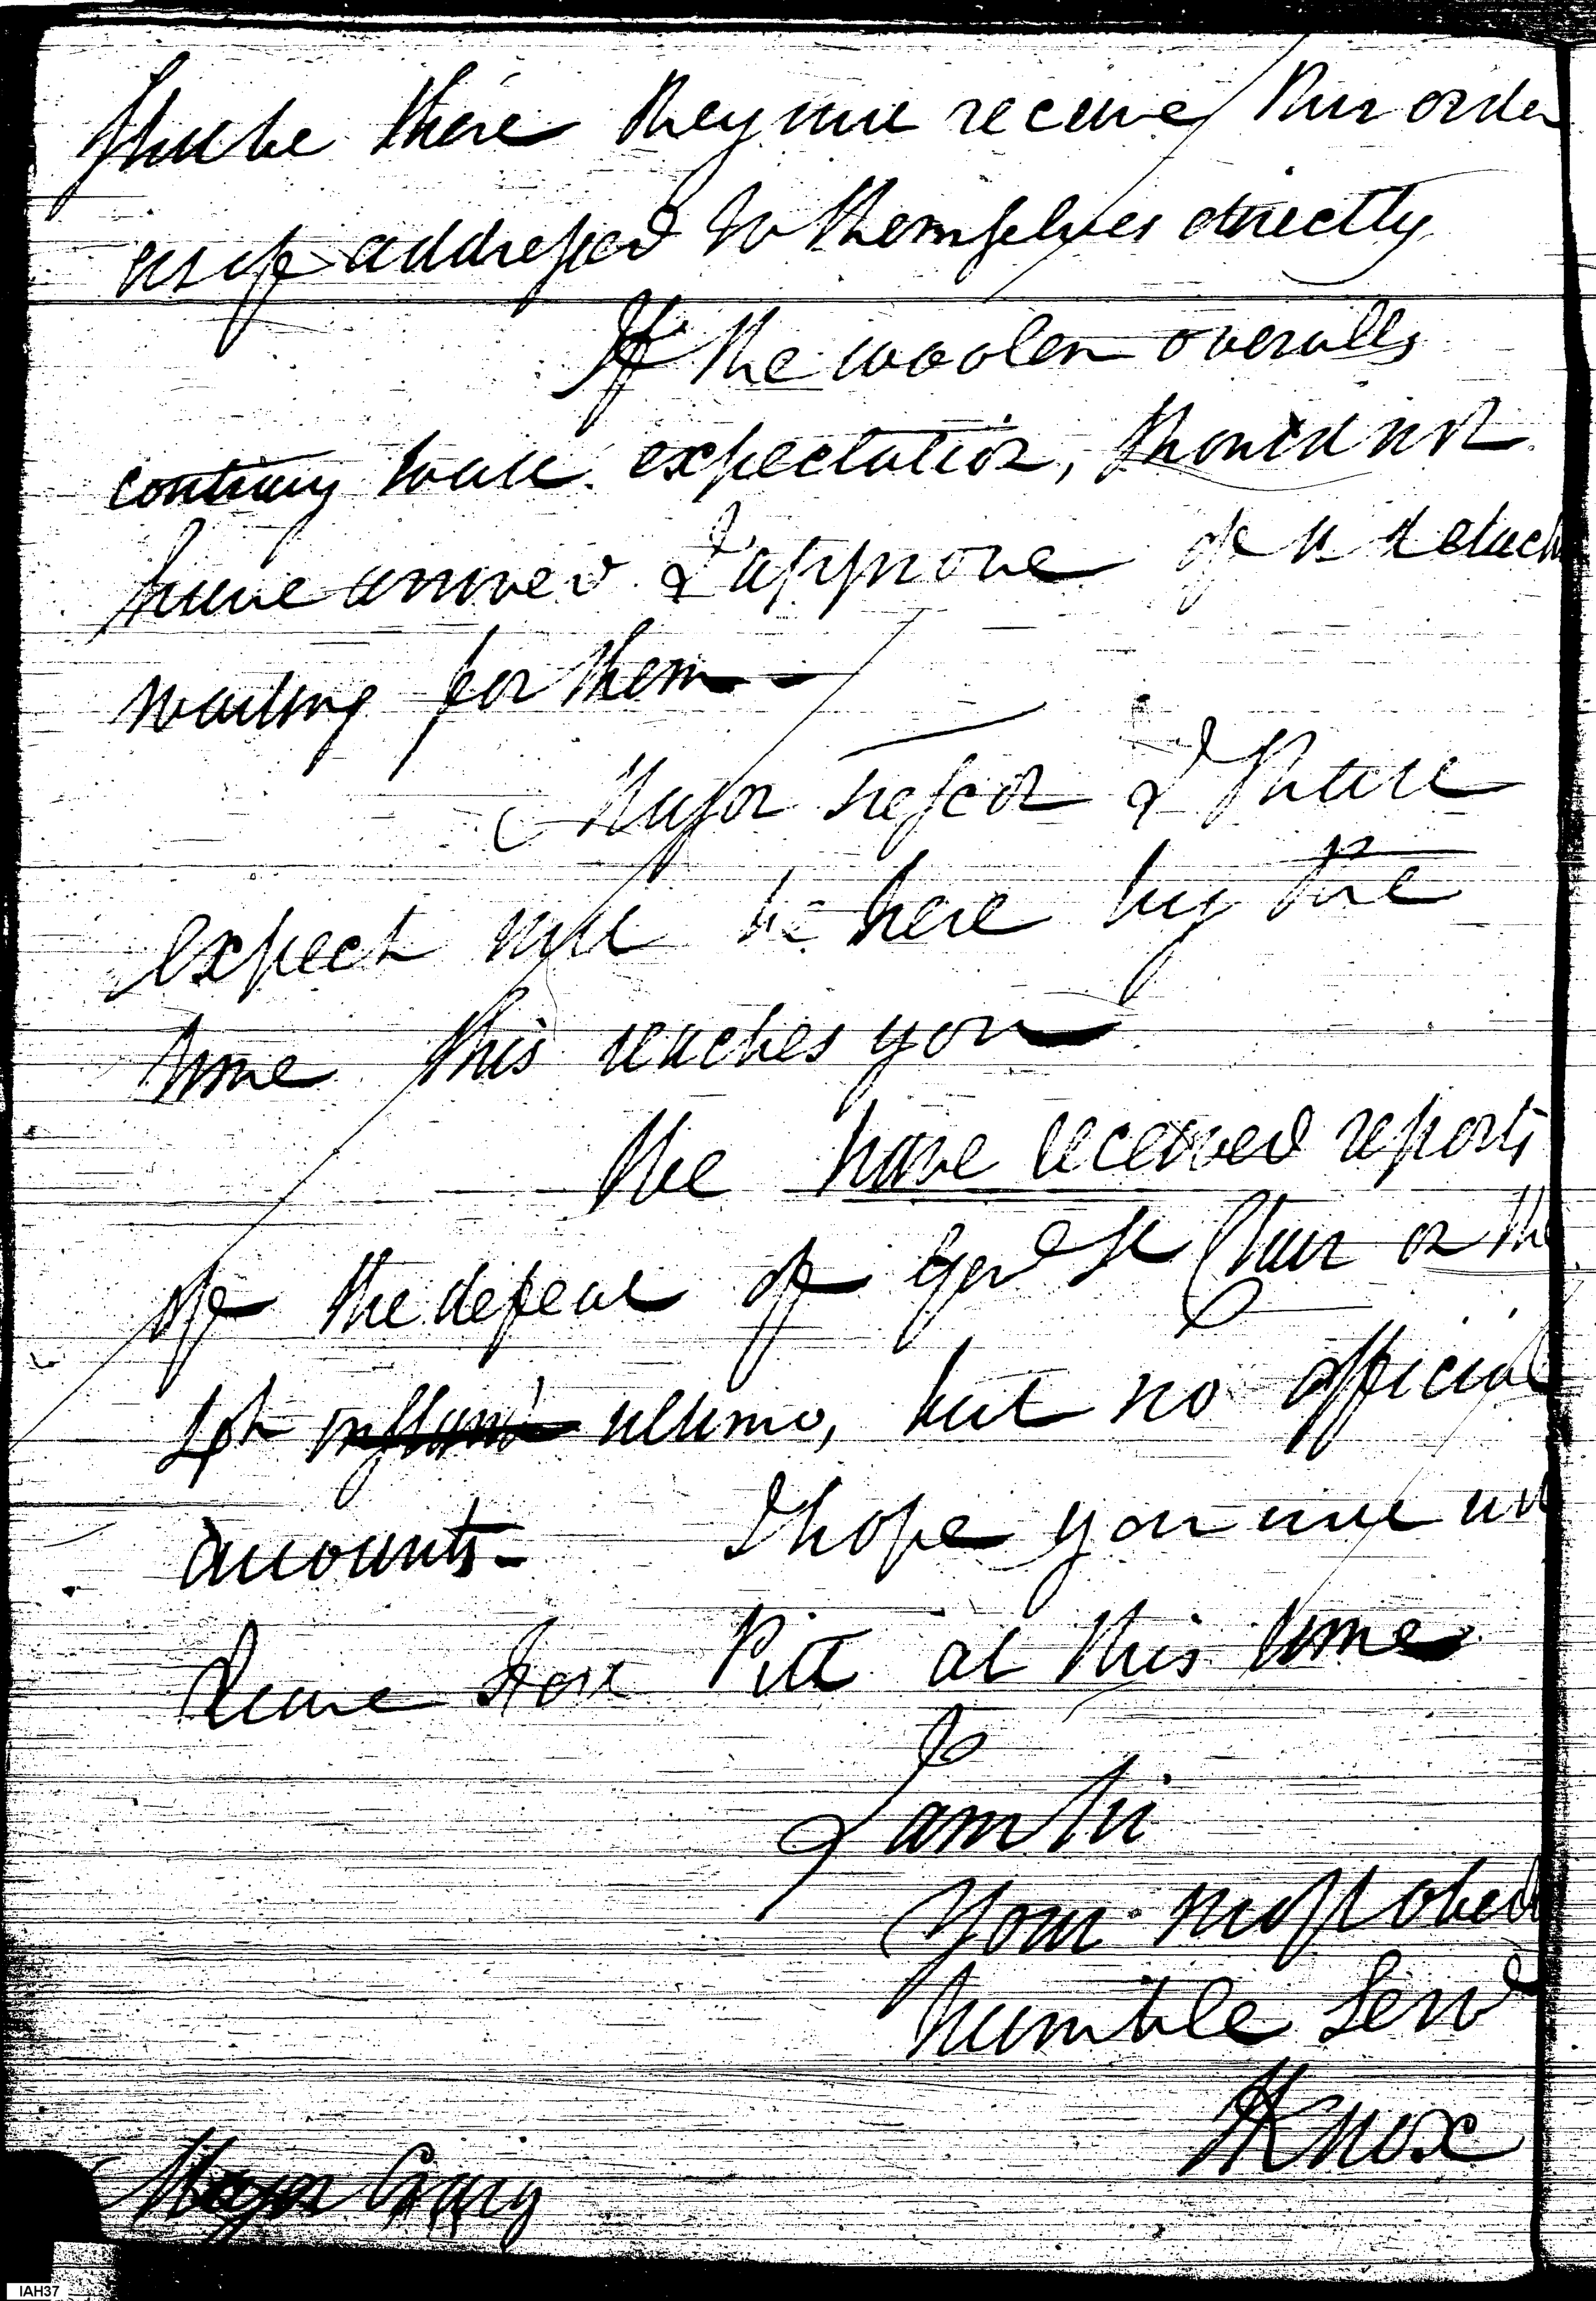 shall be there they will receive this order
as if addressed to themselves directly
If the woolen overalls
contrary to all expectation, should not
have arrived I approve of a detach
waiting for them—
Major Trescot I shall
expect will be here by the
time this reaches you
We have received reports
of the defeat of Genl St Clair on the
4th instant ultimo, but no official
accounts— I hope you will
leave Fort Pitt at this time
I am Sir
Your most obed
humble Servt
HKnox
Major Craig
IAH37